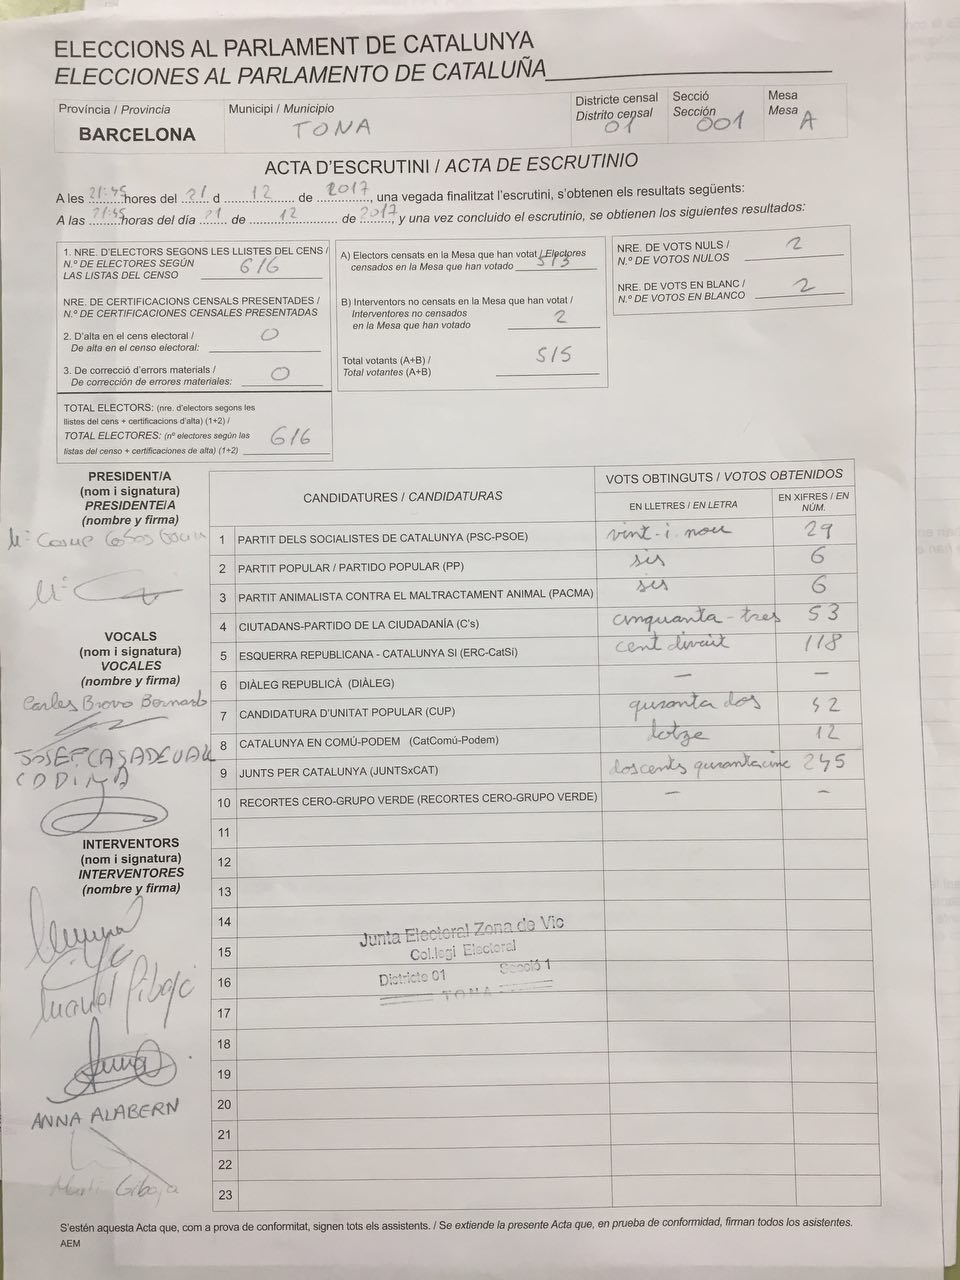 ELECCIONS AL PARLAMENT DE CATALUNYA
ELECCIONES AL PARLAMENTO DE CATALUÑA
Província / Provincia
BARCELONA
Municipi / Municipio
TONA
Districte censal
Distrito censal
01
Secció
Sección
001
Mesa
Mesa
A
ACTA D'ESCRUTINI / ACTA DE ESCRUTINIO
A les 21:45 hores del 21 d 12 de 2017, una vegada finalitzat l'escrutini, s'obtenen els resultats següents:
A las 21:45 horas del día 21 de 12 de 2017 y una vez concluido el escrutinio, se obtienen los siguientes resultados:
1. NRE. D'ELECTORS SEGONS LES LLISTES DEL CENS /
N.º DE ELECTORES SEGÚN
LAS LISTAS DEL CENSO 616
NRE. DE CERTIFICACIONS CENSALS PRESENTADES /
N.º DE CERTIFICACIONES CENSALES PRESENTADAS
2. D'alta en el cens electoral /
De alta en el censo electoral: 0
3. De correcció d'errors materials /
De corrección de errores materiales: 0
TOTAL ELECTORS: (nre. d'electors segons les
llistes del cens + certificacions d'alta) (1+2) /
TOTAL ELECTORES: (nº electores según las
listas del censo + certificaciones de alta) (1+2) 616
A) Electors censats en la Mesa que han votat / Electores
censados en la Mesa que han votado 513
B) Interventors no censats en la Mesa que han votat /
Interventores no censados
en la Mesa que han votado 2
Total votants (A+B) /
Total votantes (A+B) 515
NRE. DE VOTS NULS /
N.º DE VOTOS NULOS 2
NRE. DE VOTS EN BLANC /
N.º DE VOTOS EN BLANCO 2
PRESIDENT/A
(nom i signatura)
PRESIDENTE/A
(nombre y firma)
VOCALS
(nom i signatura)
VOCALES
(nombre y firma)
Carles Bravo Bernardo
JOSEP CASADEVALL
CODINA
INTERVENTORS
(nom i signatura)
INTERVENTORES
(nombre y firma)
ANNA ALABERN
Martí Giboja
CANDIDATURES / CANDIDATURAS
VOTS OBTINGUTS / VOTOS OBTENIDOS
EN LLETRES / EN LETRA
EN XIFRES / EN NÚM.
1 PARTIT DELS SOCIALISTES DE CATALUNYA (PSC-PSOE) vint-i-nou 29
2 PARTIT POPULAR / PARTIDO POPULAR (PP) sis 6
3 PARTIT ANIMALISTA CONTRA EL MALTRACTAMENT ANIMAL (PACMA) sis 6
4 CIUTADANS-PARTIDO DE LA CIUDADANÍA (C's) cinquanta-tres 53
5 ESQUERRA REPUBLICANA - CATALUNYA SI (ERC-CatSí) cent divuit 118
6 DIÀLEG REPUBLICÀ (DIÀLEG) — —
7 CANDIDATURA D'UNITAT POPULAR (CUP) quranta dos 42
8 CATALUNYA EN COMÚ-PODEM (CatComú-Podem) dotze 12
9 JUNTS PER CATALUNYA (JUNTSxCAT) doscents qurantacinc 245
10 RECORTES CERO-GRUPO VERDE (RECORTES CERO-GRUPO VERDE) — —
11
12
13
14
15
16
17
18
19
20
21
22
23
Junta Electoral Zona de Vic
Col.legi Electoral
Districte 01 Secció 1
TONA
S'estén aquesta Acta que, com a prova de conformitat, signen tots els assistents. / Se extiende la presente Acta que, en prueba de conformidad, firman todos los asistentes.
AEM